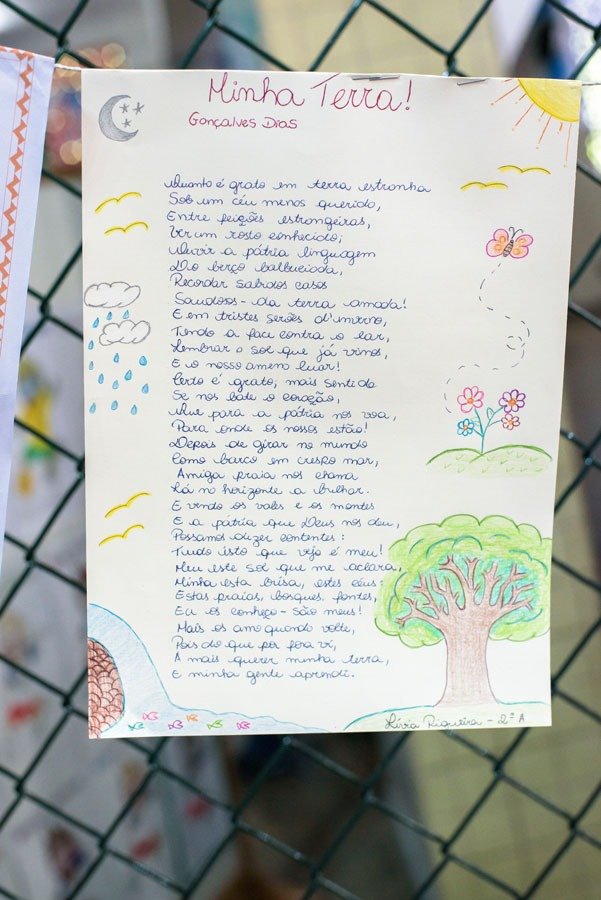 Minha Terra!
Gonçalves Dias
Quanto é grato em terra estronha
Sob um céu menos querido,
Entre feições estrongeiras,
Ver um rosto conhecido;
Ouvir a pátria linguagem
Do berço balbuciada,
Recordar sabidos casos
Saudosos - da terra amada!
E em tristes serões d'inverno,
Tendo a face contra o lar,
Lembrar o sol que já vimos,
E o nosso ameno luar!
Certo é grato; mais sentido
Se nos bate o coração,
Que para a pátria nos voa,
Para onde os nossos estão!
Depois de girar no mundo
Como barco em crespo mar,
Amiga praia nos chama
Lá no horizonte a brilhar.
E vendo os vales e os montes
E a pátria que Deus nos deu,
Possamos dizer contentes:
Tudo isto que vejo é meu!
Meu este sol que me aclara,
Minha esta brisa, estes céus:
Estas praias, bosques, fontes,
Eu os conheço - são meus!
Mais os amo quando volte,
Pois do que por fora vi,
A mais querer minha terra,
E minha gente aprendi.
Lívia Riqueira - 2º A